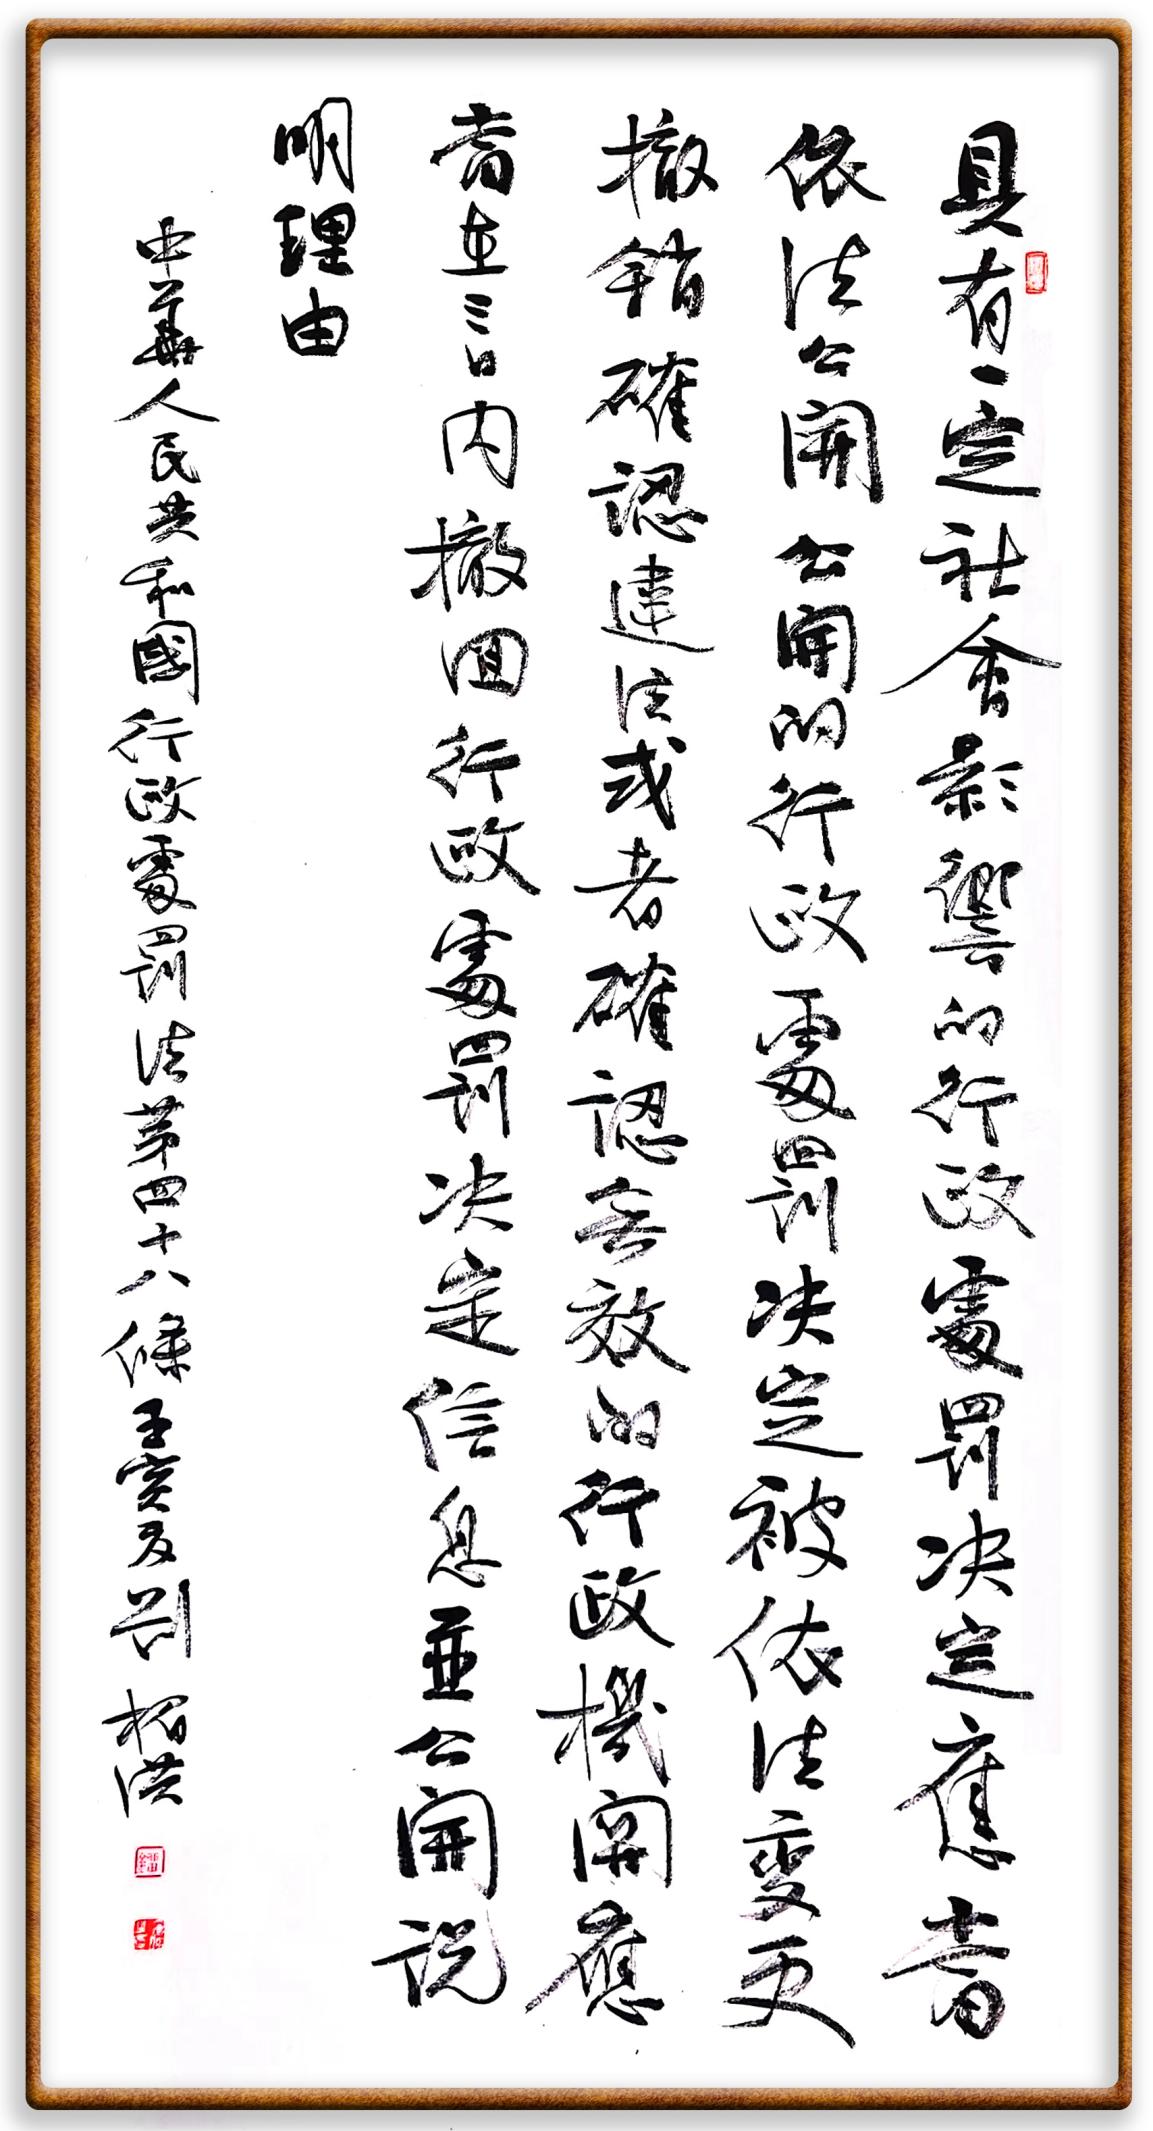 具有一定社會影響的行政處罰决定應當
依法公開公開的行政處罰决定被依法變更
撤銷確認違法或者確認無效的行政機關應
當在三日内撤回行政處罰决定信息並公開説
明理由
中華人民共和國行政處罰法第四十八條壬寅